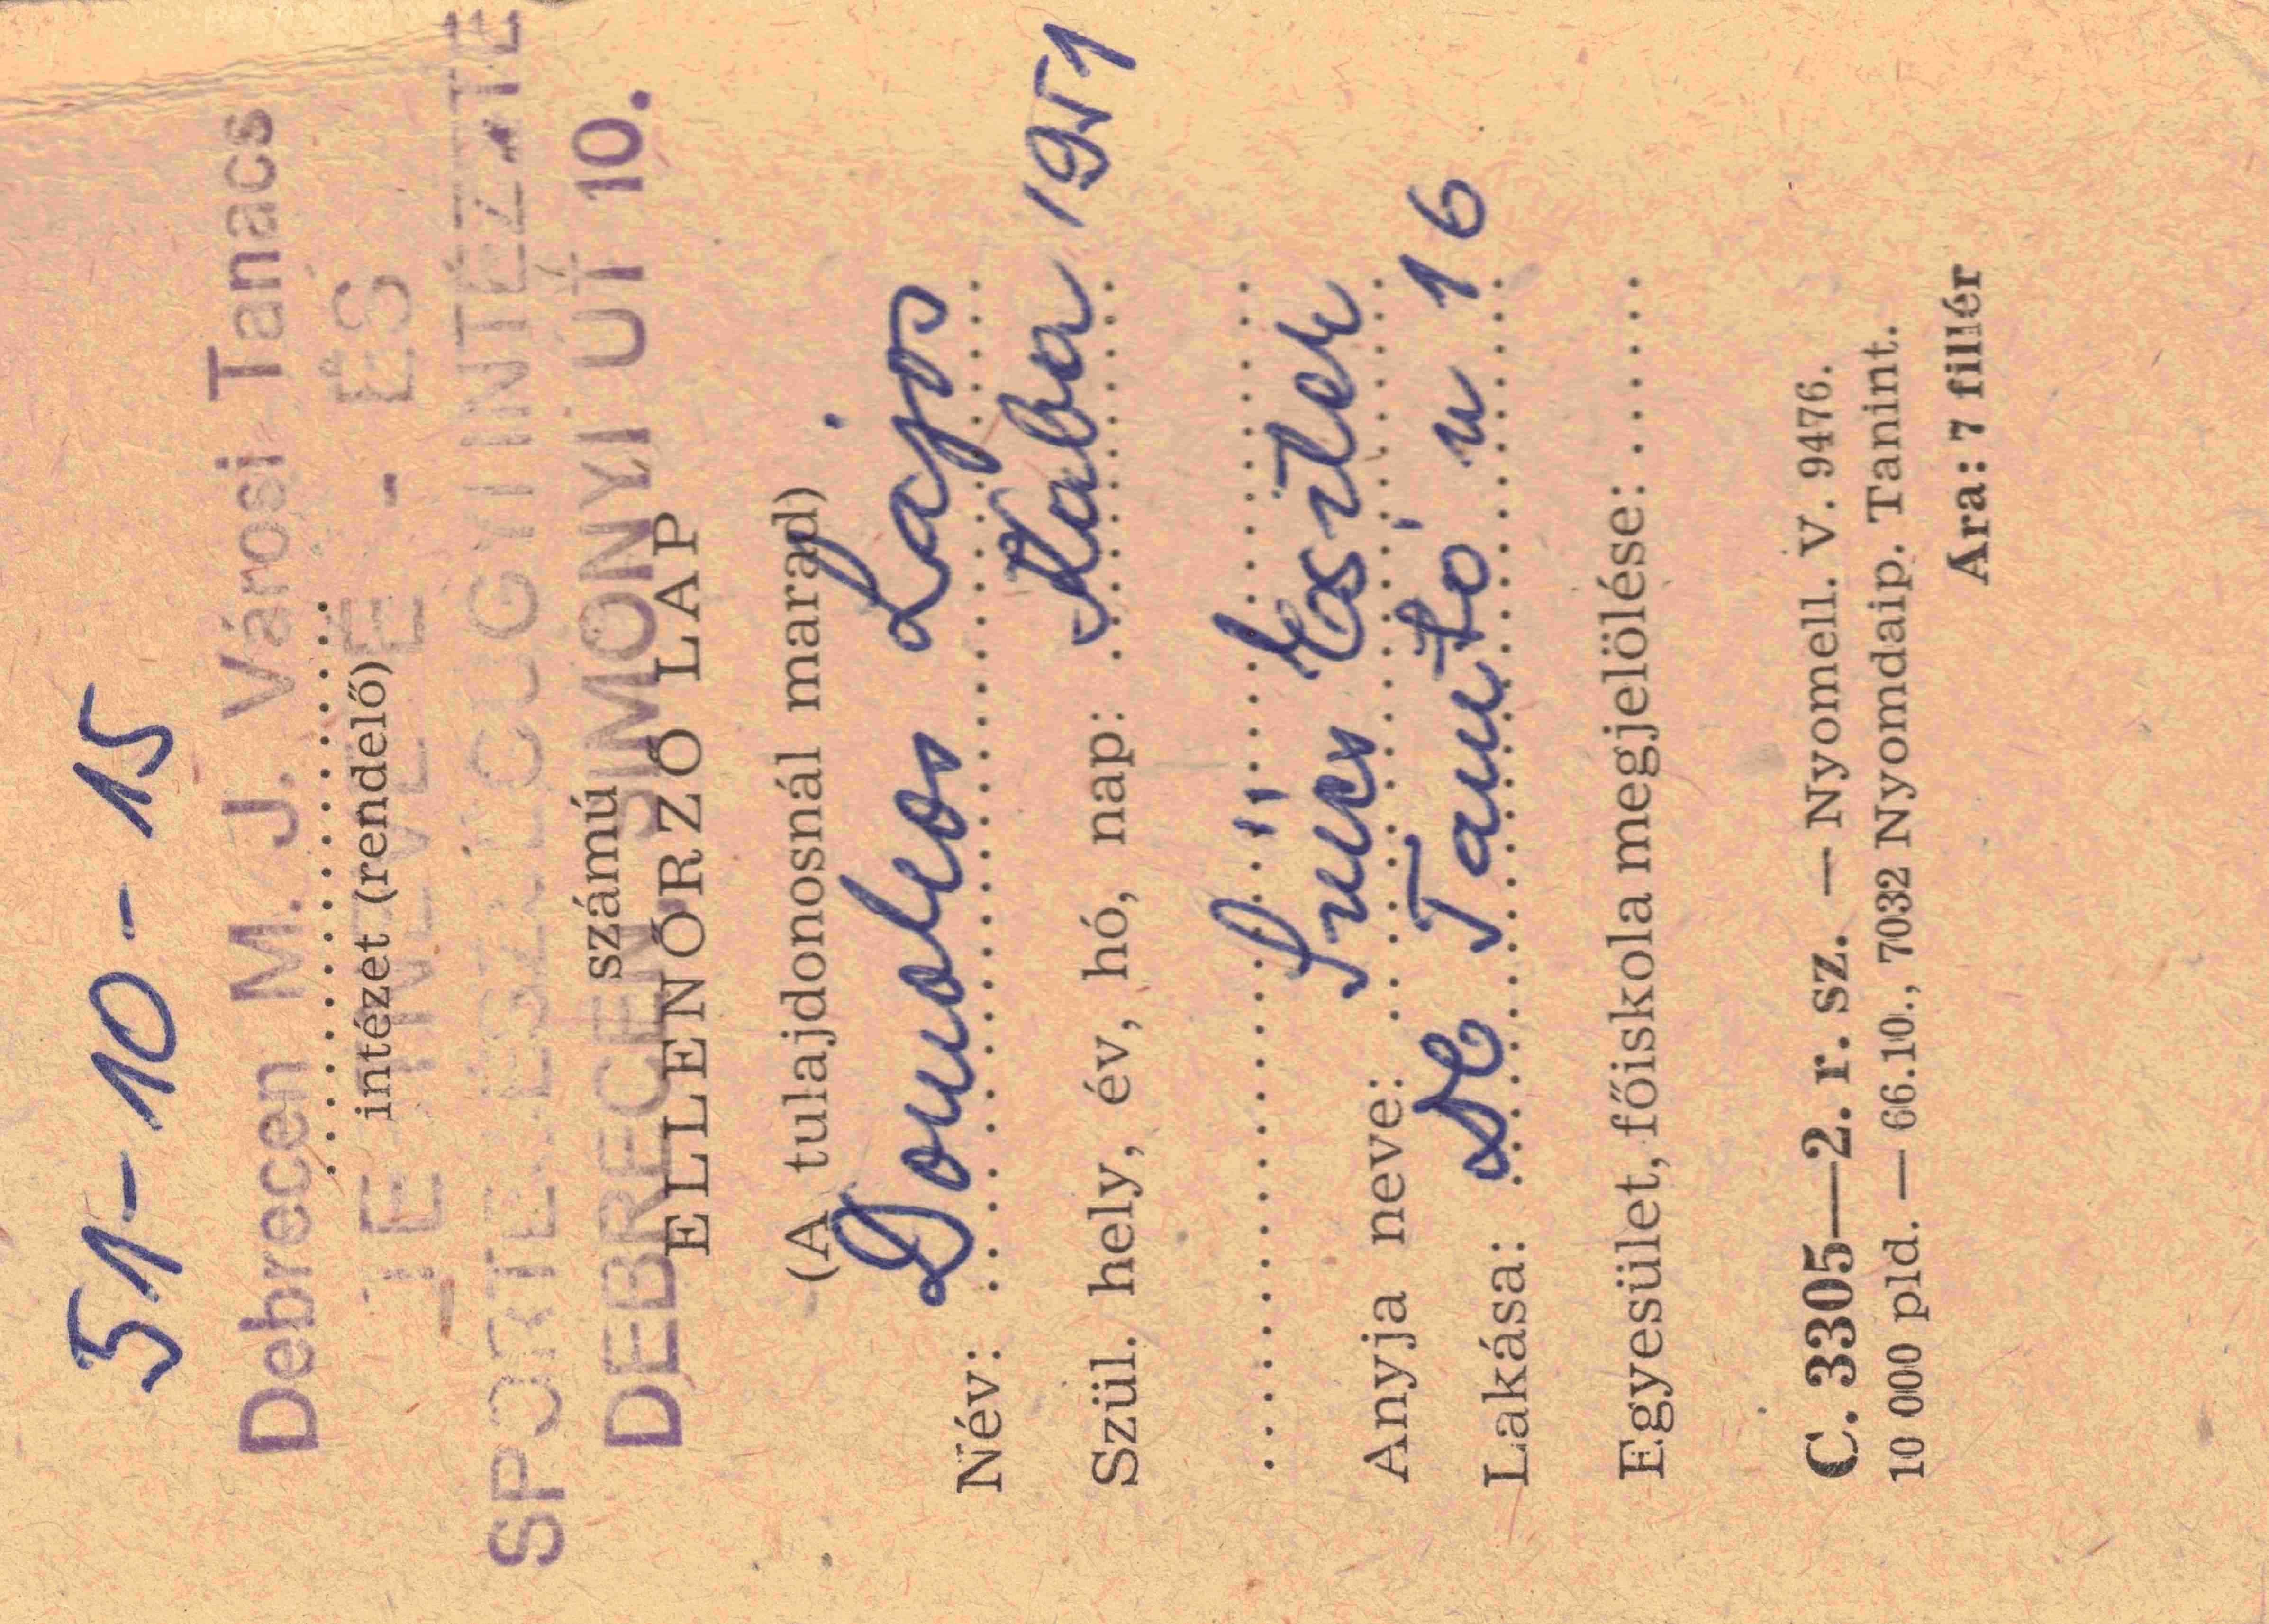 51-10-15
Debrecen M. J. Városi Tanács
intézet (rendelő)
TE ... NEVELÉ - ÉS
SPORTEGÉSZSÉGÜGYI INTÉZETE
számú
DEBRECEN, SIMONYI ÚT 10.
ELLENŐRZŐ LAP
(A tulajdonosnál marad)
Név: Domokos Lajos
Szül. hely, év, hó, nap: Kaba 1951
Anyja neve: Szűcs Eszter
Lakása: Tanító u 16
Egyesület, főiskola megjelölése:
C. 3305—2. r. sz. — Nyomell. V. 9476.
10 000 pld. — 66.10., 7032 Nyomdaip. Tanint.
Ára: 7 fillér